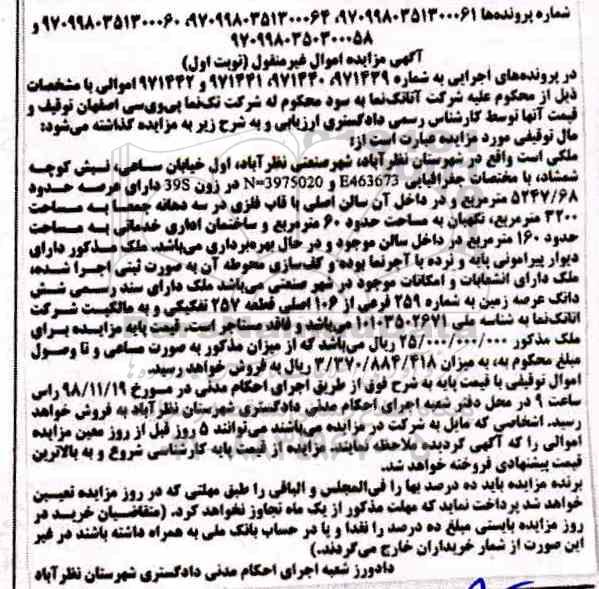 شماره پرونده‌ها ۹۷۰۹۹۸۰۳۵۱۳۰۰۰۶۱، ۹۷۰۹۹۸۰۳۵۱۳۰۰۰۶۴، ۹۷۰۹۹۸۰۳۵۱۳۰۰۰۶۰ و
۹۷۰۹۹۸۰۳۵۰۳۰۰۰۵۸
آگهی مزایده اموال غیرمنقول (نوبت اول)
در پرونده‌های اجرایی به شماره ۹۷۱۴۳۹، ۹۷۱۴۴۰، ۹۷۱۴۴۱ و ۹۷۱۴۴۲ اموالی با مشخصات
ذیل از محکوم علیه شرکت آتانک‌نما به سود محکوم له شرکت تک‌نما پی‌وی‌سی اصفهان توقیف و
قیمت آنها توسط کارشناس رسمی دادگستری ارزیابی و به شرح زیر به مزایده گذاشته می‌شود:
مال توقیفی مورد مزایده عبارت است از:
ملکی است واقع در شهرستان نظرآباد، شهرصنعتی نظرآباد، اول خیابان ساحی، نبش کوچه
شمشاد، با مختصات جغرافیایی E463673 و N=3975020 در زون 39S دارای عرصه حدود
۵۲۴۷/۶۸ مترمربع و در داخل آن سالن اصلی با قاب فلزی در سه دهانه جمعا به مساحت
۳۲۰۰ مترمربع، نگهبان به مساحت حدود ۶۰ مترمربع و ساختمان اداری خدماتی به مساحت
حدود ۱۶۰ مترمربع در داخل سالن موجود و در حال بهره‌برداری می‌باشد. ملک مذکور دارای
دیوار پیرامونی پایه و نرده با آجرنما بوده و کف‌سازی محوطه آن به صورت ثبتی اجرا شده،
ملک دارای انشعابات و امکانات موجود در شهر صنعتی می‌باشد ملک دارای سند رسمی شش
دانگ عرصه زمین به شماره ۲۵۹ فرعی از ۱۰۶ اصلی قطعه ۲۵۷ تفکیکی و به مالکیت شرکت
اتانک‌نما به شناسه ملی ۱۰۱۰۳۵۰۲۶۷۱ می‌باشد و فاقد مستاجر است. قیمت پایه مزایده برای
ملک مذکور ۲۵/۰۰۰/۰۰۰/۰۰۰ ریال می‌باشد که از میزان مذکور به صورت مساعی و تا وصول
مبلغ محکوم به، به میزان ۳/۳۷۰/۸۸۴/۴۱۸ ریال به فروش خواهد رسید.
اموال توقیفی با قیمت پایه به شرح فوق از طریق اجرای احکام مدنی در مورخ ۹۸/۱۱/۱۹ راس
ساعت ۹ در محل دفتر شعبه اجرای احکام مدنی دادگستری شهرستان نظرآباد به فروش خواهد
رسید. اشخاصی که مایل به شرکت در مزایده می‌باشند می‌توانند ۵ روز قبل از روز معین مزایده
اموالی را که آگهی گردیده ملاحظه نمایند. مزایده از قیمت پایه کارشناسی شروع و به بالاترین
قیمت پیشنهادی فروخته خواهد شد.
برنده مزایده باید ده درصد بها را فی‌المجلس و الباقی را طبق مهلتی که در روز مزایده تعیین
خواهد شد پرداخت نماید که مهلت مذکور از یک ماه تجاوز نخواهد کرد. (متقاضیان خرید در
روز مزایده بایستی مبلغ ده درصد را نقدا و یا در حساب بانک ملی به همراه داشته باشند در غیر
این صورت از شمار خریداران خارج می‌گردند.)
دادورز شعبه اجرای احکام مدنی دادگستری شهرستان نظرآباد